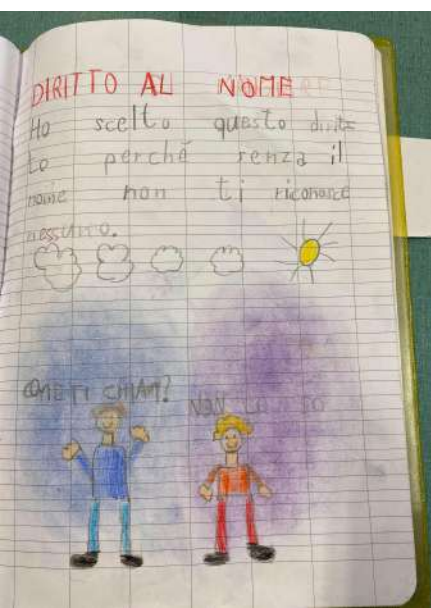 DIRITTO AL NOME
Ho scelto questo dirit
to perché senza il
nome non ti riconosce
nessuno.
COME TI CHIAMI? NON LO SO